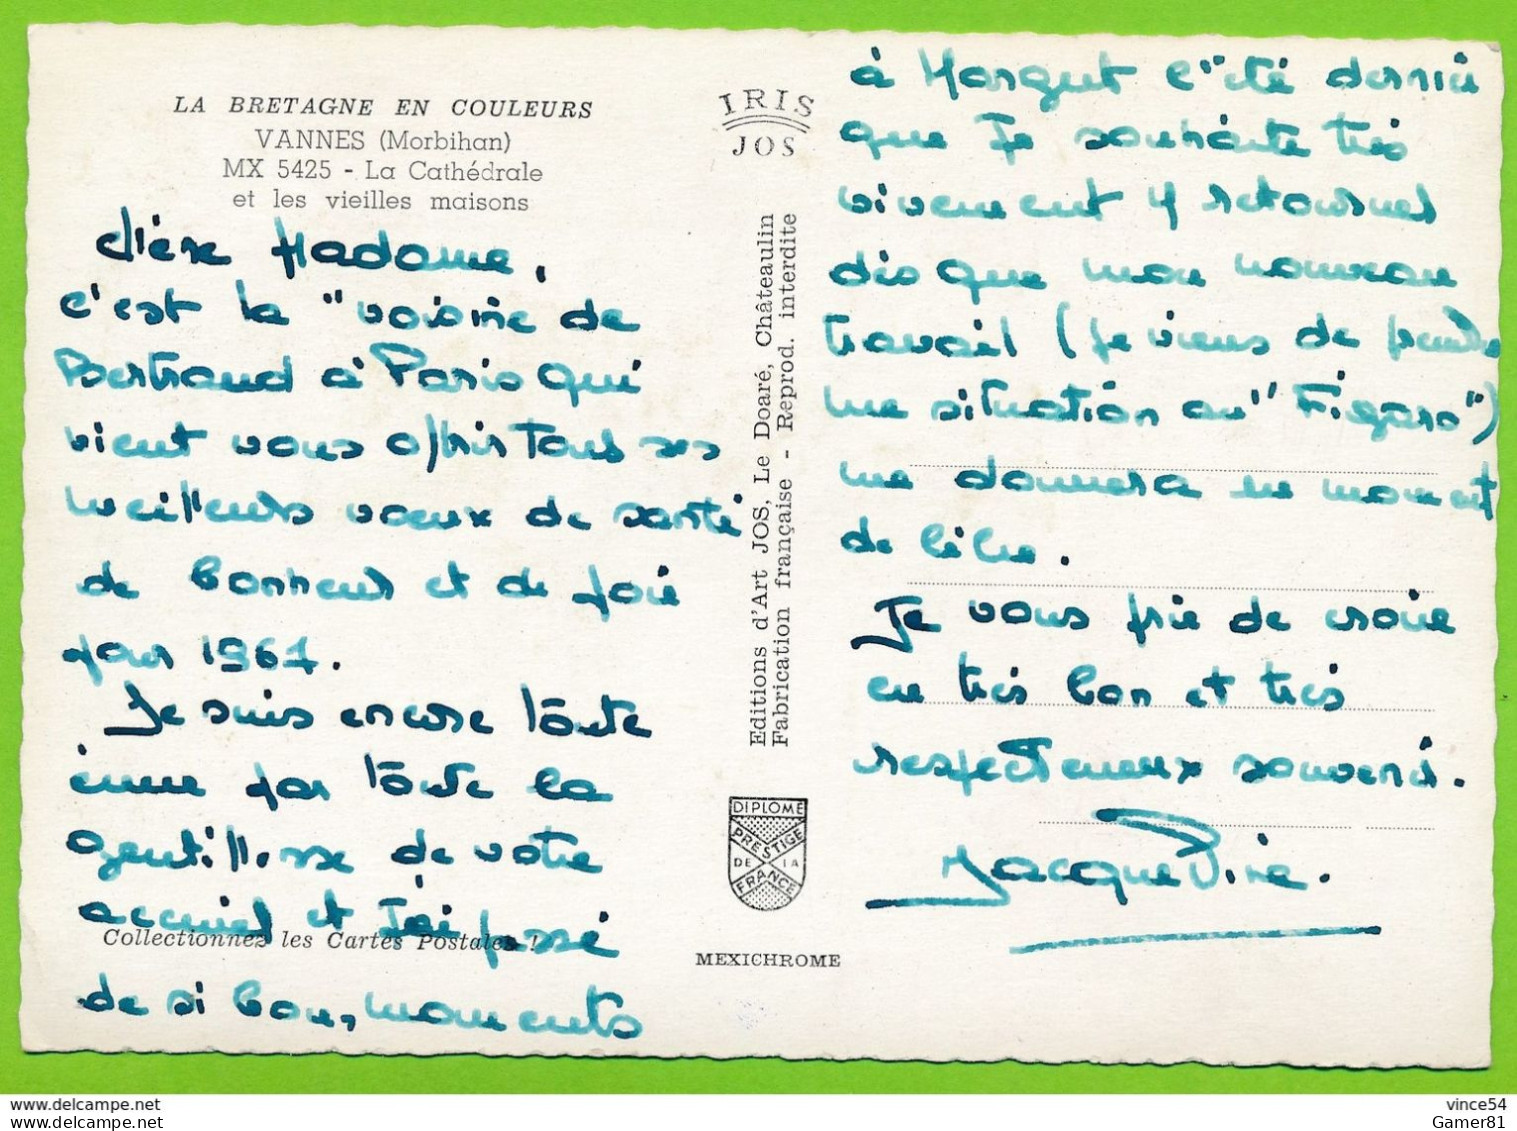 LA BRETAGNE EN COULEURS
VANNES (Morbihan)
MX 5425 - La Cathédrale
et les vieilles maisons
Chère Madame,
c'est la "voisine de
Bertrand à Paris qui
vient vous offrir tous ses
meilleurs voeux de santé
de bonheur et de joie
pour 1961.
Je suis encore toute
émue par toute la
gentillesse de votre
accueil et j'ai passé
Collectionnez les Cartes Postales !
de si bons moments
IRIS
JOS
Editions d'Art JOS, Le Doaré, Châteaulin
Fabrication française - Reprod. interdite
DIPLOME
PRESTIGE
DE LA
FRANCE
MEXICHROME
à Margut l'été dernier
que je souhaite très
vivement y retourner
dès que mon nouveau
travail (je viens de prendre
une situation au "Figaro")
me donnera un moment
de libre.
Je vous prie de croire
en très bon et très
respectueux souvenir.
Jacqueline.
vince54
Gamer81